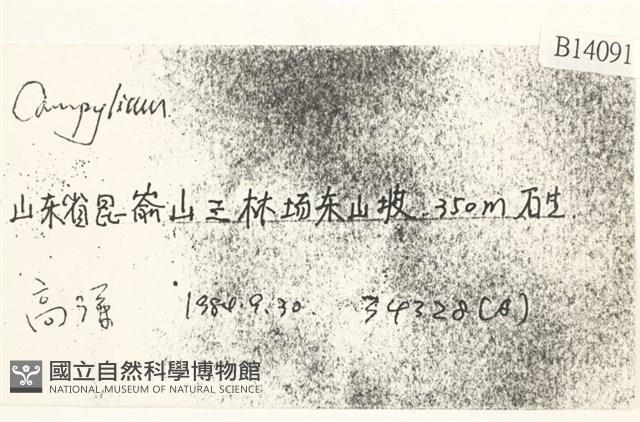 B14091
Campylium
山东省昆嵛山三林场东山坡.350m 石生.
高谦 1984.9.30. 34328(A)
國立自然科學博物館
NATIONAL MUSEUM OF NATURAL SCIENCE